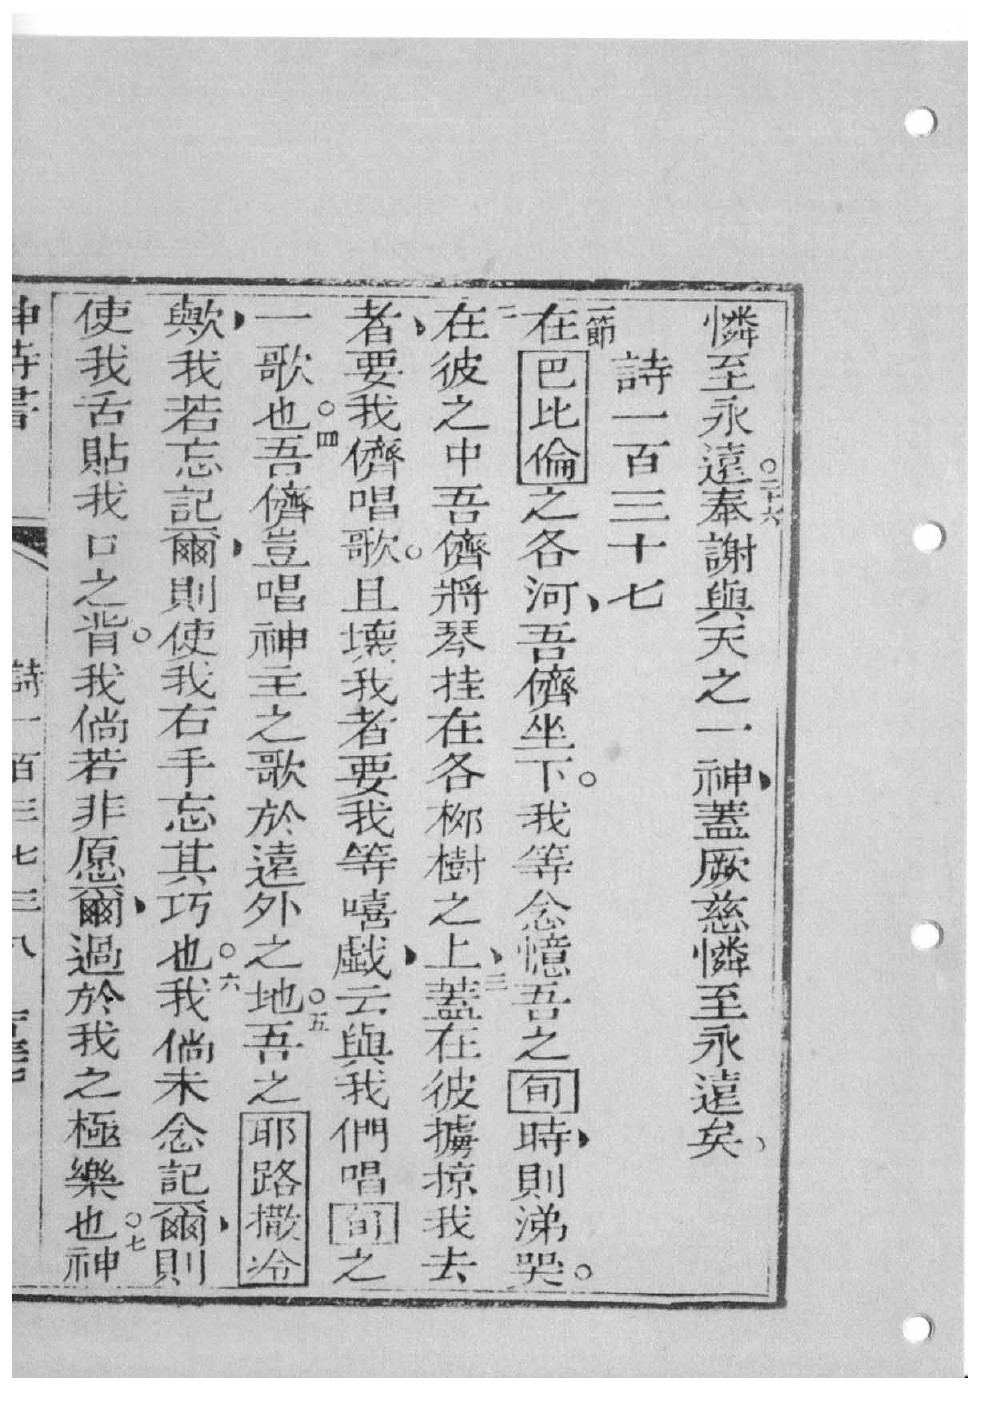 憐至永遠○二十六奉謝與天之一神蓋厥慈憐至永遠矣
詩一百三十七
一節在巴比倫之各河吾儕坐下○我等念憶吾之旬時則涕哭○
二在彼之中吾儕將琴挂在各柳樹之上三蓋在彼擄掠我去
者要我儕唱歌○且壞我者要我等嘻戱云與我們唱旬之
一歌也○四吾儕豈唱神主之歌於遠外之地○五吾之耶路撒冷
歟我若忘記爾則使我右手忘其巧也○六我倘未念記爾則
使我舌貼我口之背○我倘若非愿爾過於我之極樂也○七神
神詩書 詩一百三七 三八